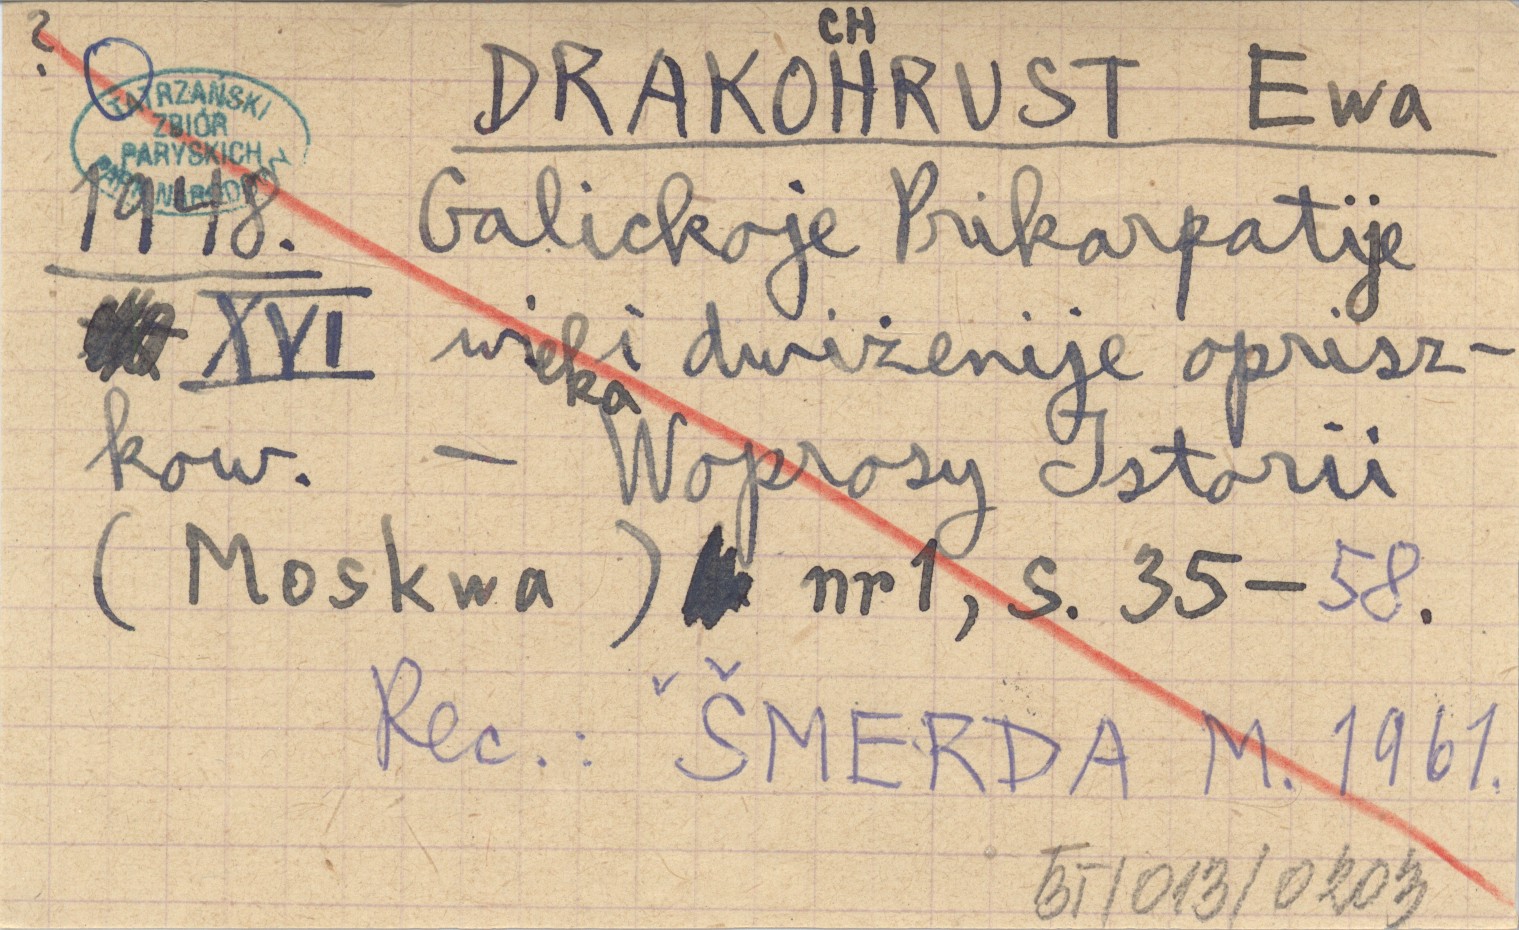 ?
CH
DRAKOHRUST Ewa
TATRZAŃSKI
ZBIÓR
PARYSKICH
PARK NARODOWY
1948. Galickoje Prikarpatije
XVI wieki dwiżenije oprisz-
ka
kow. — Woprosy Istorii
(Moskwa) nr 1, s. 35-58.
Rec.: ŠMERDA M. 1961.
BT/013/0203